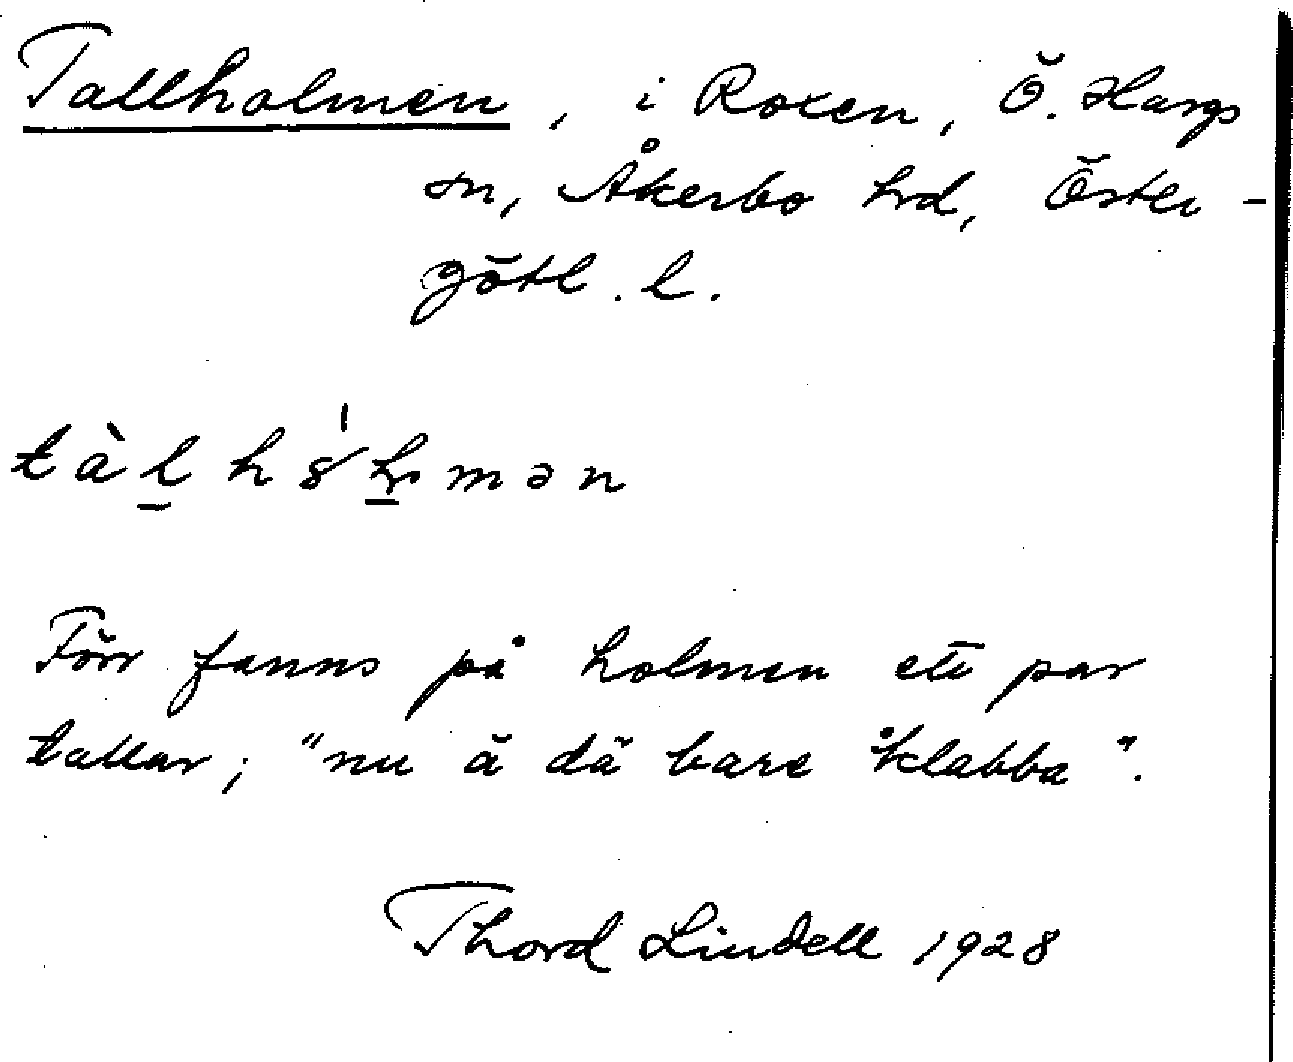 Tallholmen, i Roxen, Ö. Hargs
sn, Åkerbo hrd, Öster-
götl. l.
Förr fanns på holmen ett par
tallar; "nu ä dä bare klabba".
Thord Lindell 1928